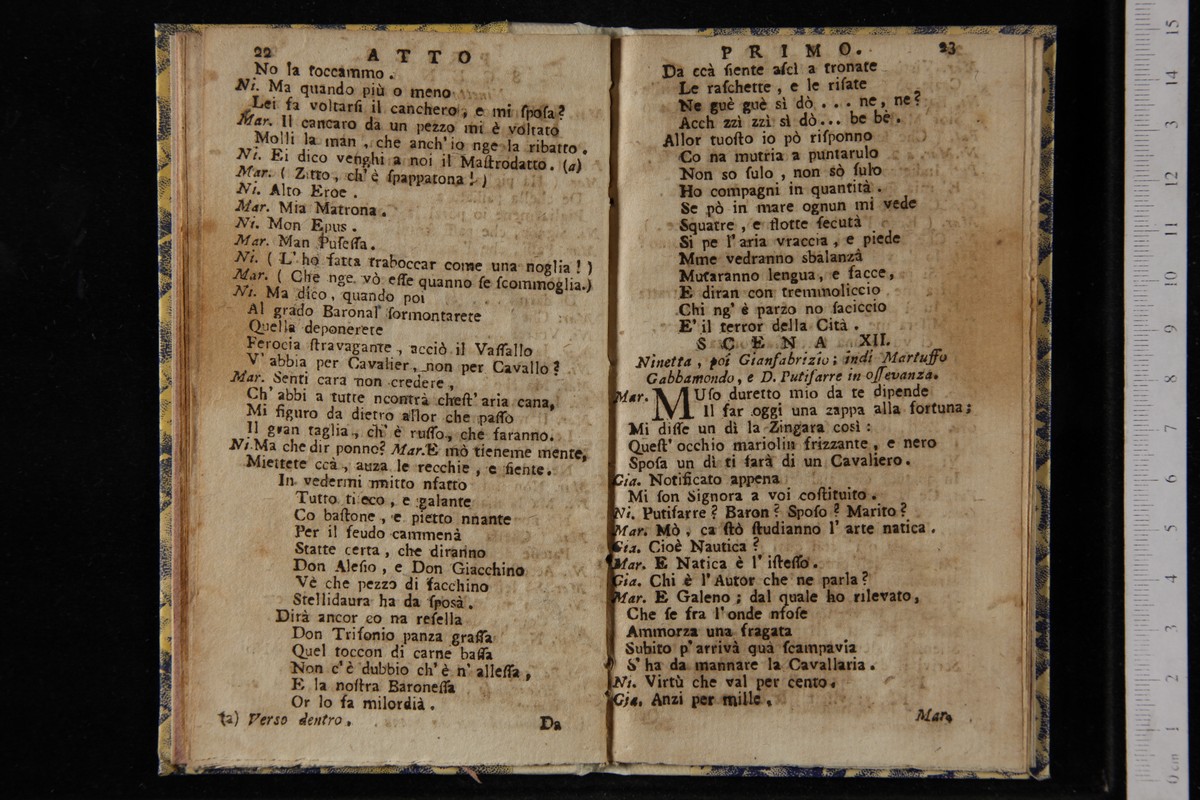 22 ATTO
No la toccammo.
Ni. Ma quando più o meno
Lei fa voltarſi il canchero, e mi ſpoſa?
Mar. Il cancaro da un pezzo mi è voltato
Molli la man, che anch'io nge la ribatto.
Ni. Ei dico venghi a noi il Maſtrodatto. (a)
Mar. ( Zitto, ch'è ſpappatona! )
Ni. Alto Eroe.
Mar. Mia Matrona.
Ni. Mon Epus.
Mar. Man Puſeſſa.
Ni. ( L'ho fatta traboccar come una noglia! )
Mar. ( Che nge vò eſſe quanno ſe ſcommoglia.)
Ni. Ma dico, quando poi
Al grado Baronal ſormontarete
Quella deponerete
Ferocia ſtravagante, acciò il Vaſſallo
V'abbia per Cavalier, non per Cavallo?
Mar. Senti cara non credere,
Ch'abbi a tutte ncontrà cheſt'aria cana,
Mi figuro da dietro allor che paſſo
Il gran taglia, ch'è ruſſo, che faranno.
Ni. Ma che dir ponno? Mar. E mò tieneme mente,
Miettete ccà, auza le recchie, e ſiente.
In vedermi mmitto nfatto
Tutto tieco, e galante
Co baſtone, e pietto nnante
Per il feudo cammenà
Statte certa, che diranno
Don Aleſio, e Don Giacchino
Vè che pezzo di facchino
Stellidaura ha da ſposà.
Dirà ancor co na reſella
Don Trifonio panza graſſa
Quel toccon di carne baſſa
Non c'è dubbio ch'è n'alleſſa,
E la noſtra Baroneſſa
Or lo fa milordià.
(a) Verso dentro.
Da
PRIMO. 23
Da ccà ſiente aſcì a tronate
Le raſchette, e le riſate
Ne guè guè sì dò... ne, ne?
Acch zzì zzì sì dò... be bè.
Allor tuoſto io pò riſponno
Co na mutria a puntarulo
Non so ſulo, non sò ſulo
Ho compagni in quantità.
Se pò in mare ognun mi vede
Squatre, e flotte ſecutà
Si pe l'aria vraccia, e piede
Mme vedranno sbalanzà
Mutaranno lengua, e facce,
E diran con tremmoliccio
Chi ng'è parzo no ſaciccio
E' il terror della Cità.
SCENA XII.
Ninetta, poi Gianfabrizio; indi Martuffo
Gabbamondo, e D. Putifarre in oſſevanza.
Mar. MUſo duretto mio da te dipende
Il far oggi una zappa alla fortuna;
Mi diſſe un dì la Zingara così:
Queſt'occhio mariolin frizzante, e nero
Spoſa un dì ti farà di un Cavaliero.
Gia. Notificato appena
Mi ſon Signora a voi coſtituito.
Ni. Putifarre? Baron? Spoſo? Marito?
Mar. Mò, ca ſtò ſtudianno l'arte natica.
Gia. Cioè Nautica?
Mar. E Natica è l'iſteſſo.
Gia. Chi è l'Autor che ne parla?
Mar. E Galeno; dal quale ho rilevato,
Che ſe fra l'onde nfoſe
Ammorza una fragata
Subito p'arrivà quà ſcampavia
S'ha da mannare la Cavallaria.
Ni. Virtù che val per cento.
Gia. Anzi per mille.
Mar.